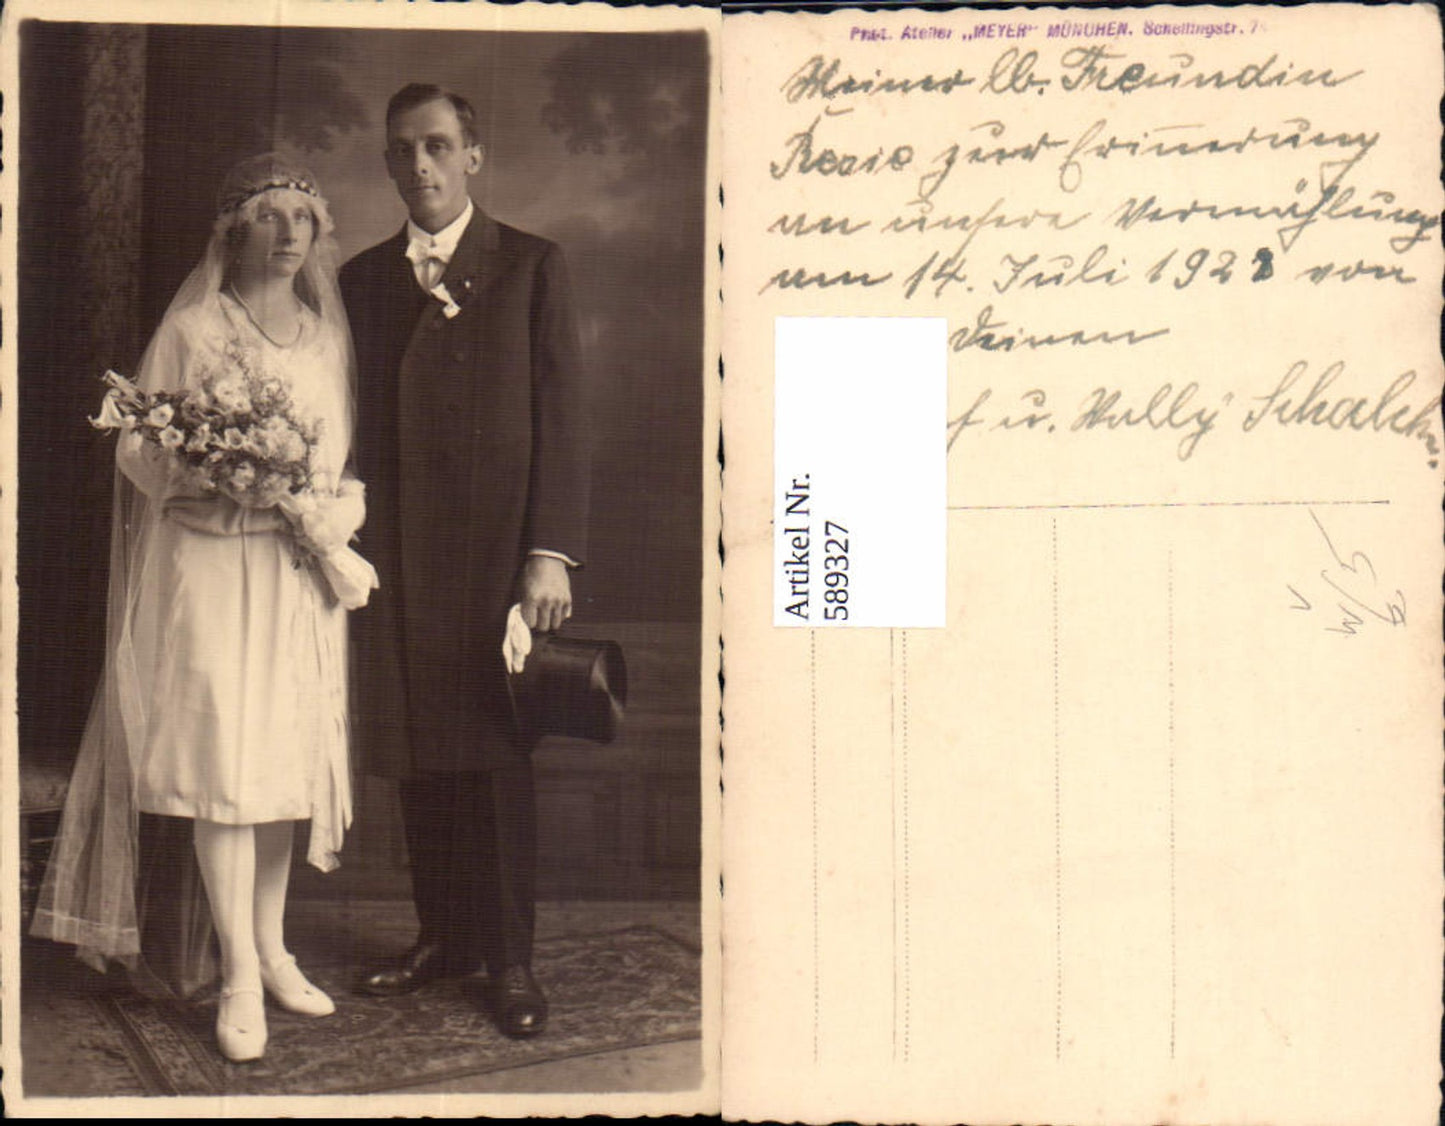 Phot. Atelier „MEYER“ MÜNCHEN. Schellingstr. 7
Meiner lb. Freundin
Resie zur Erinnerung
an unsere Vermählung
am 14. Juli 1928 von
Deinen
f u. Wally Schalch
Artikel Nr.
589327